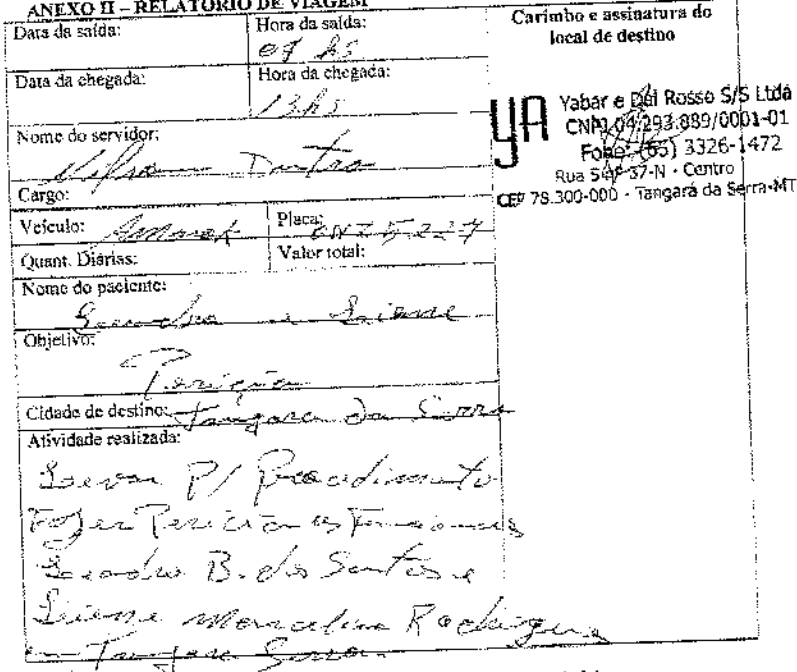 ANEXO II – RELATÓRIO DE VIAGEM
Data da saída:
Hora da saída:
07 hs
Data da chegada:
Hora da chegada:
13 hs
Nome do servidor:
Nilson Dutra
Cargo:
Veículo: Amarok
Placa:
Quant. Diárias:
Valor total:
Nome do paciente:
Leandro e Liane
Objetivo:
Perícia
Cidade de destino: Tangara da Serra
Atividade realizada:
Levar P/ Procedimento
Fazer Pericia os Funcionarios
Leandro B. dos Santos e
Liane Marcelina Rodrigues
em Tangara Serra
Carimbo e assinatura do
local de destino
YA
Yabar e Dal Rosso S/S Ltda
CNPJ 04.293.889/0001-01
Fone: (65) 3326-1472
Rua 37-N - Centro
CEP 78.300-000 - Tangará da Serra-MT